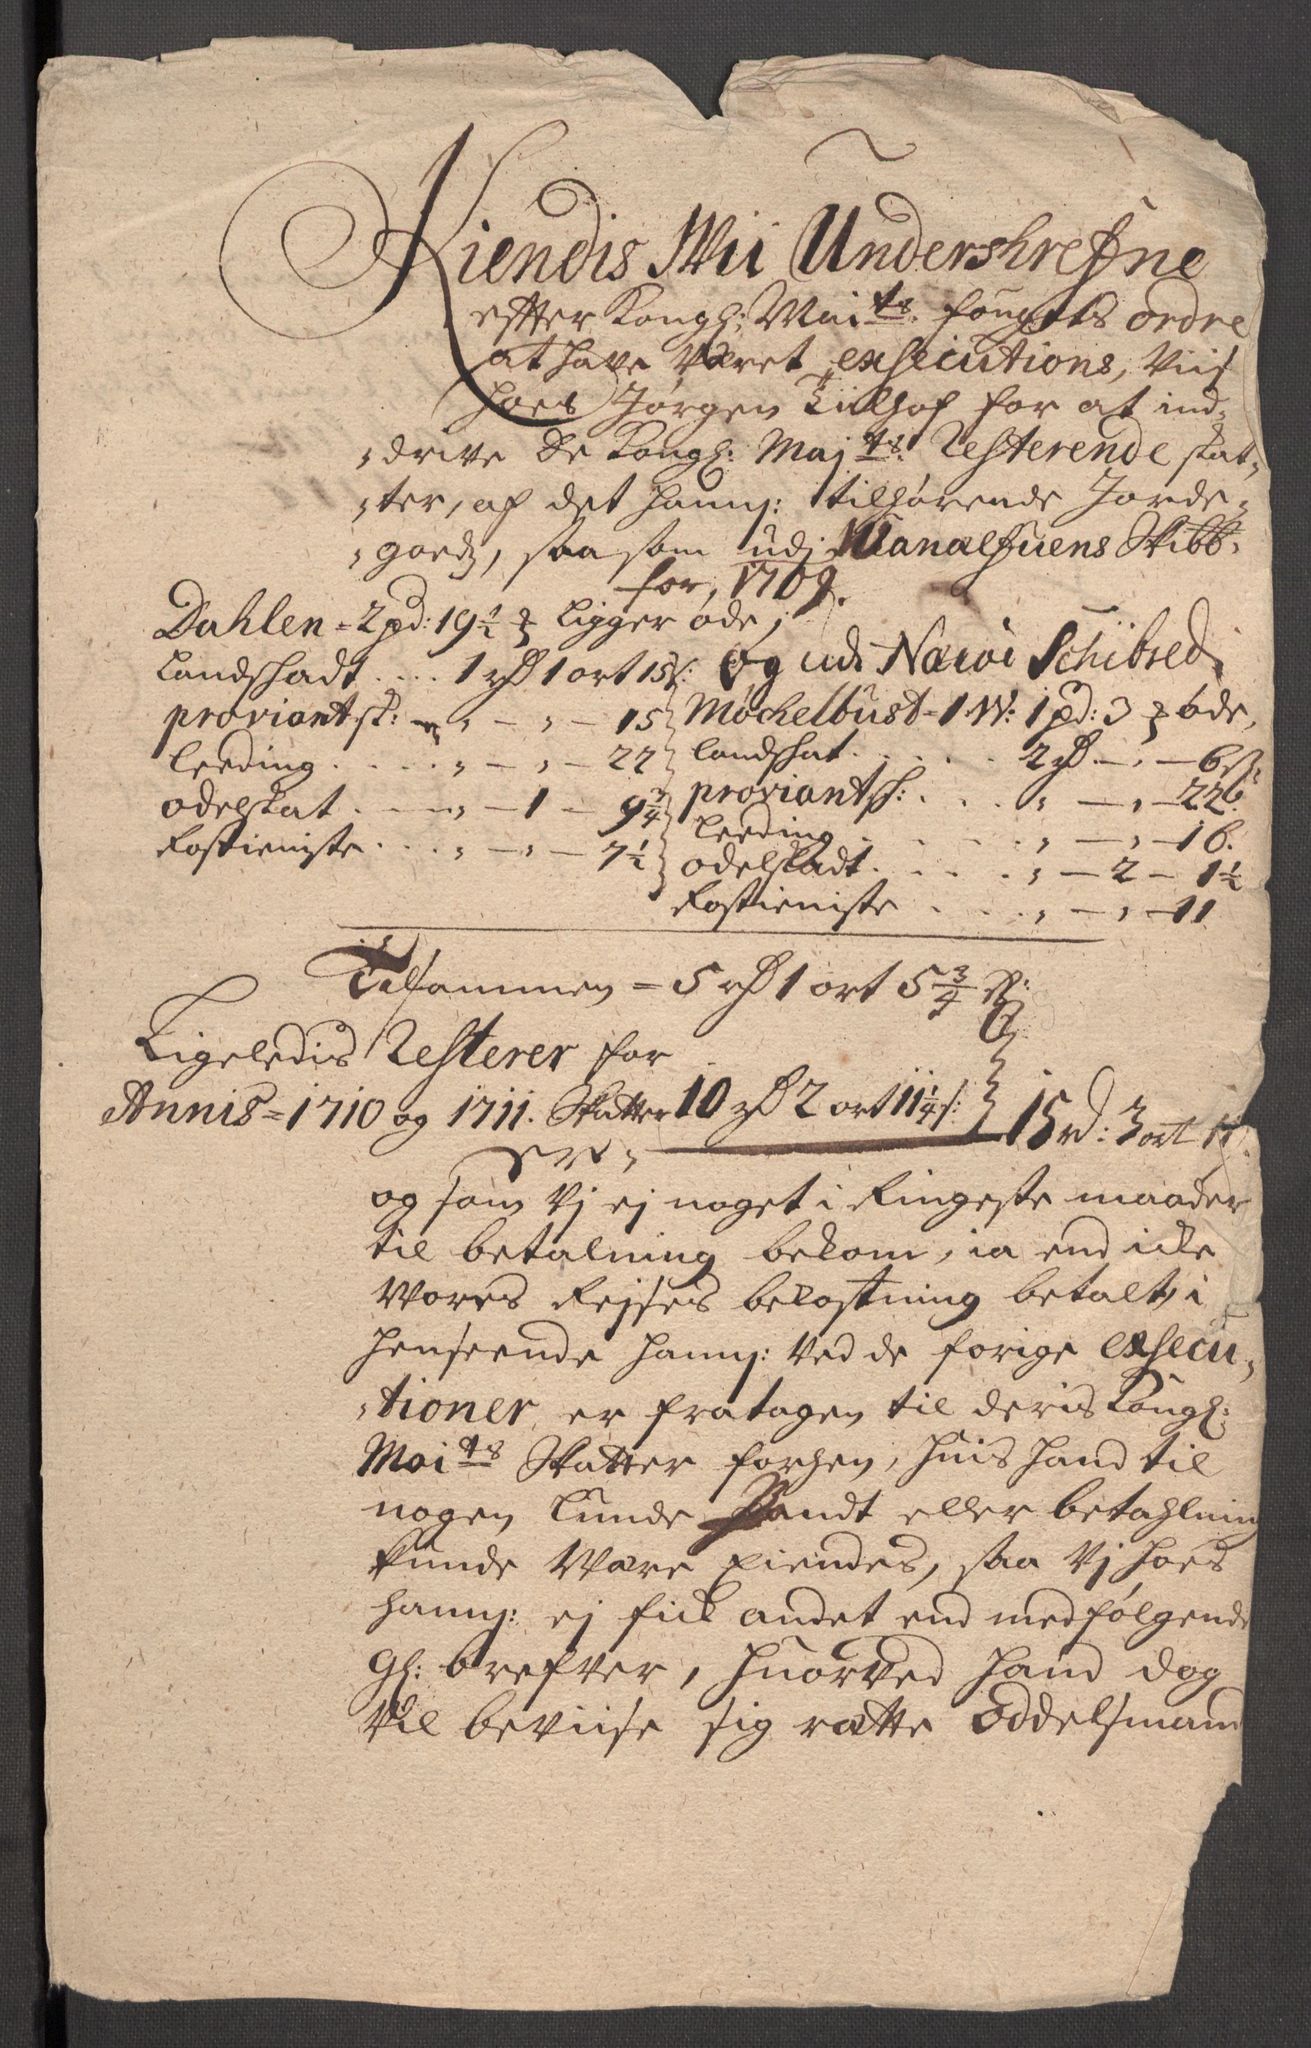 Kiendis Wii Underskrefne
effter Kongl: Mai<sup>ts</sup>. fougets ordre
at have Været exsecutions, Viis
hoes Jørgen Tiilhof for at ind-
drive De Kongl: Maj<sup>ts</sup>: Resterende skat-
ter, af det hannem: tilhørende Jorde-
goedz, saa som udj Nanalfuens Skibb:
for, 1709.
Dahlen = 2 pd: 19 1/2 ligger øde,
Landskadt .... 1 rd 1 ort 15 s:
proviantsk: " - " - 15
Leeding .... " - " - 22
odelskat .... " - 1 - 9 3/4
Rostieniste ... " - " - 7 1/2
Og udi Nærøe Schibred
Møchelbust - 1 W: 1 pd: 3 øde,
landskat .... 2 rd - " - 6 s:
proviantsk: .... " - " - 22
Leeding .... " - " - 16.
odelskadt .... " - 2 - 1 1/2
Rostieniste .... " - " - 11
Tilsammen = 5 rd 1 ort 5 3/4 s:
Ligeledis Resterer for
Annis = 1710 og 1711. Skatter 10 rd 2 ort 11 1/4 s: 15 rd: 3 ort
og som Vj ej noget i Ringeste maader
til betalning bekom, ia end icke
Vores Rejses bekostning betalt, i
henseende hannem: Ved de forige exsecu-
tioner er fratagen til deris Kongl:
Mai<sup>ts</sup> Skatter forhen, huis hand til
nogen Lunde Pandt eller betahlning
kunde Være Eiendes, saa Vj hoes
hannem: ej fick andet end medfølgende
Gl: brefver, huorved hand dog
Vil beviise sig rætte Oddelsmand